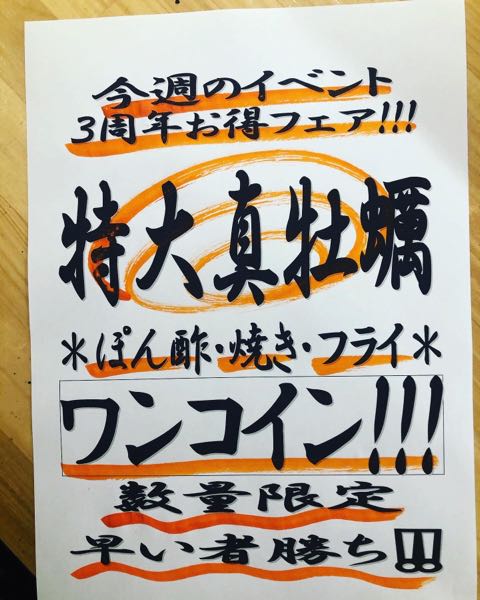 今週のイベント
3周年お得フェア!!!
特大真牡蠣
＊ぽん酢・焼き・フライ＊
ワンコイン!!!
数量限定
早い者勝ち!!